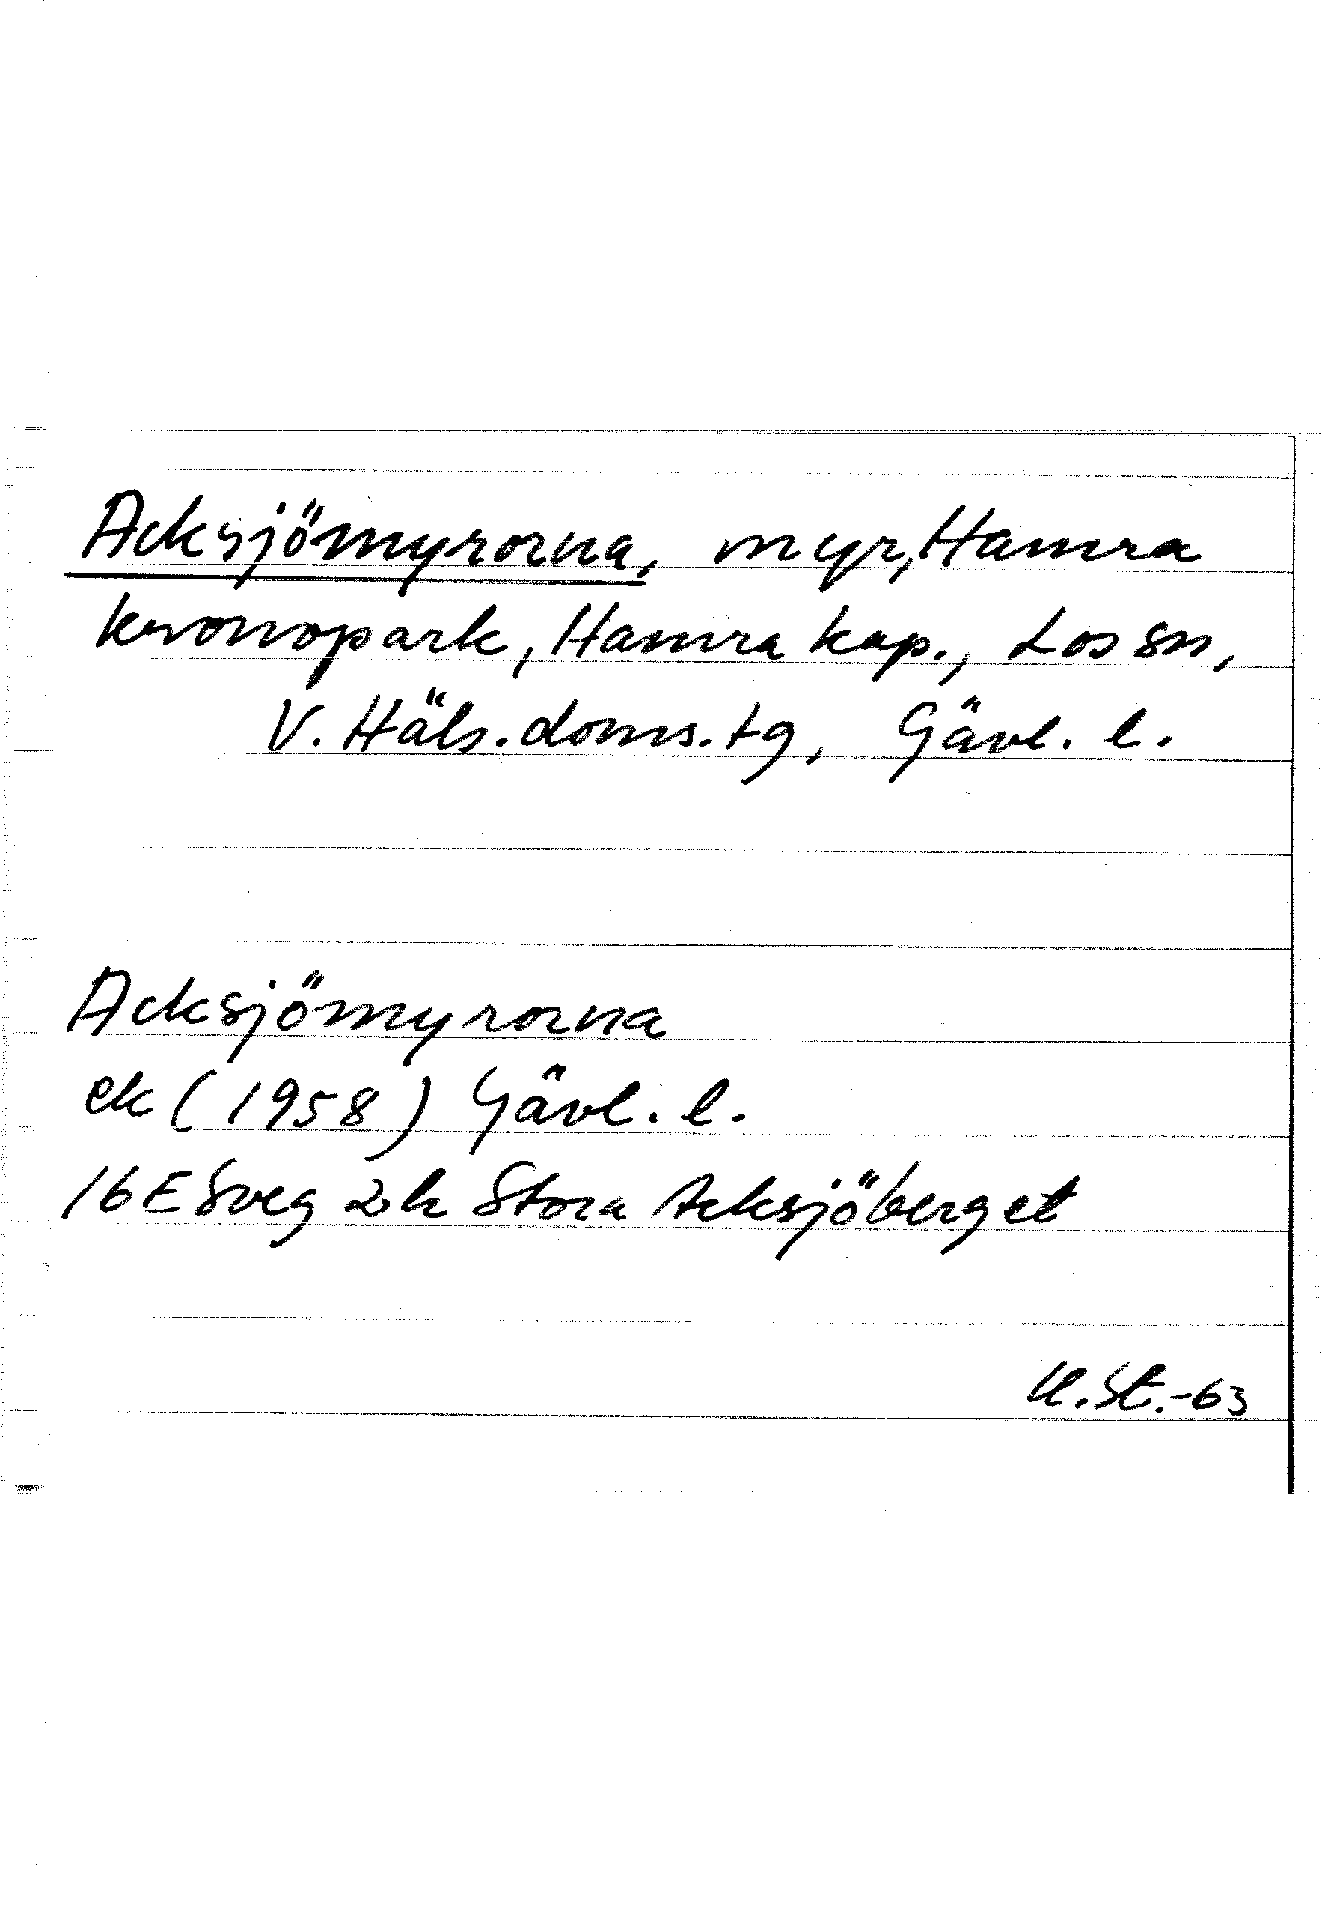 Acksjömyrorna, myr, Hamra
kronopark, Hamra kap., Los sn,
V. Häls. doms. tg, Gävl. l.
Acksjömyrorna
ek (1958) Gävl. l.
16 E Sveg 2 k Stora Acksjöberget
U. St. -63